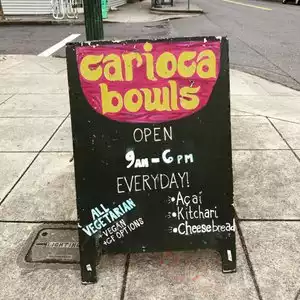 carioca
bowls
OPEN
9AM-6PM
EVERYDAY!
ALL
VEGETARIAN
• VEGAN
• GF OPTIONS
• Açaí
• Kitchari
• Cheesebread
LIGHTING